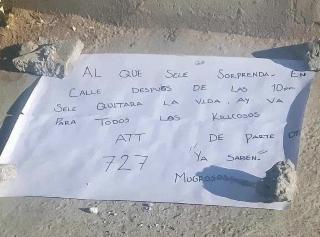 AL QUE SELE SORPRENDA EN
CALLE DESPUES DE LAS 10pm
SELE QUITARA LA VIDA. AY VA
PARA TODOS LAS KULCOSOS
ATT DE PARTE DE
727 "YA SABEN"
MUGROSOS